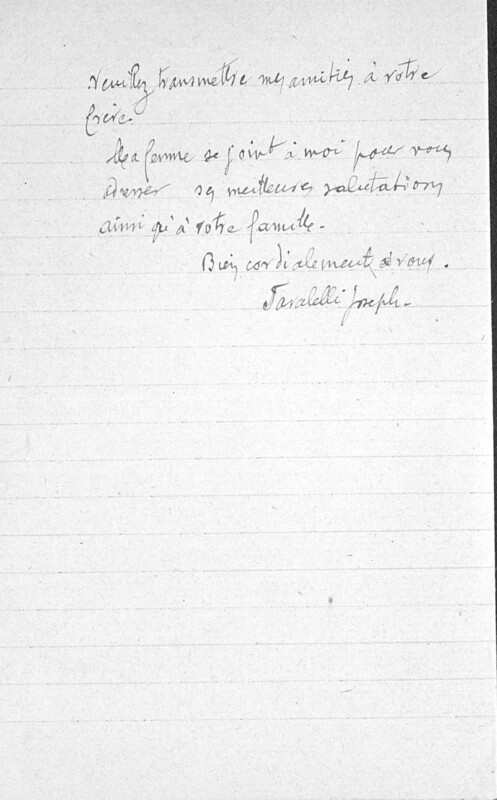 Veuillez transmettre mes amitiés à votre
frère.
Ma femme se joint à moi pour vous
adresser ses meilleures salutations
ainsi qu'à votre famille.
Bien cordialement à vous.
Joseph.